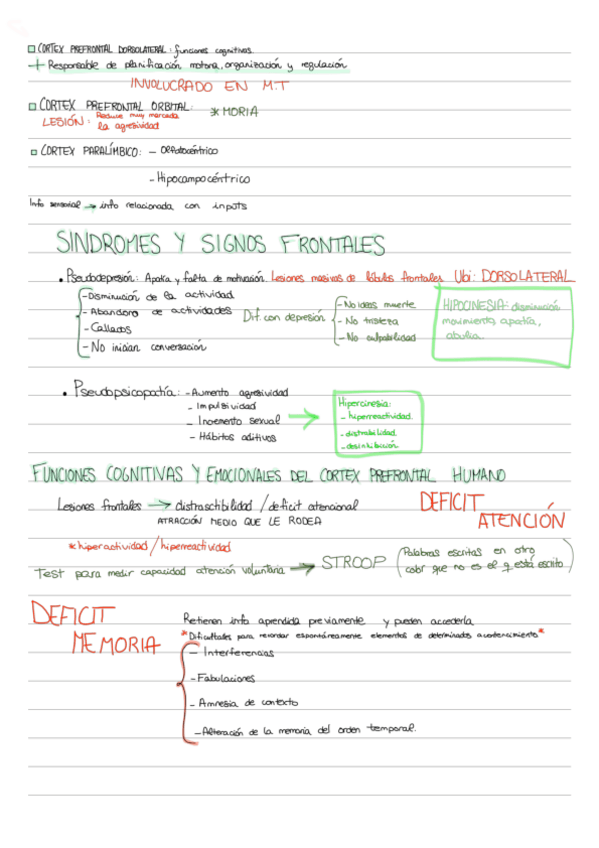 CORTEX PREFRONTAL DORSOLATERAL: funciones cognitivas
+ Responsable de planificación motora, organización y regulación
INVOLUCRADO EN M.T
CORTEX PREFRONTAL ORBITAL: * MORIA
LESIÓN: Reduce muy marcada la agresividad
CORTEX PARALÍMBICO: - Olfatocéntrico
- Hipocampocéntrico
Info sensorial → info relacionada con inputs
SINDROMES Y SIGNOS FRONTALES
• Pseudodepresión: Apatia y falta de motivación. Lesiones masivas de lóbulos frontales Ubi: DORSOLATERAL
- Disminución de la actividad
- Abandono de actividades
- Callados
- No inician conversación
Dif. con depresión
- No ideas muerte
- No tristeza
- No culpabilidad
HIPOCINESIA: disminución
movimiento, apatía,
abulia.
• Pseudopsicopatía: - Aumento agresividad
- Impulsividad
- Incremento sexual
- Hábitos aditivos
Hipercinesia:
- hiperreactividad.
- distraibilidad.
- desinhibición
FUNCIONES COGNITIVAS Y EMOCIONALES DEL CORTEX PREFRONTAL HUMANO
Lesiones frontales → distractibilidad / deficit atencional
ATRACCIÓN MEDIO QUE LE RODEA
DEFICIT
ATENCIÓN
* hiperactividad / hiperreactividad
Test para medir capacidad atención voluntaria → STROOP (Palabras escritas en otro
color que no es el q está escrito)
DEFICIT
MEMORIA
Retienen info aprendida previamente y pueden accederla
* Dificultades para recordar espontáneamente elementos de determinados acontecimiento *
- Interferencias
- Fabulaciones
- Amnesia de contexto
- Alteración de la memoria del orden temporal.